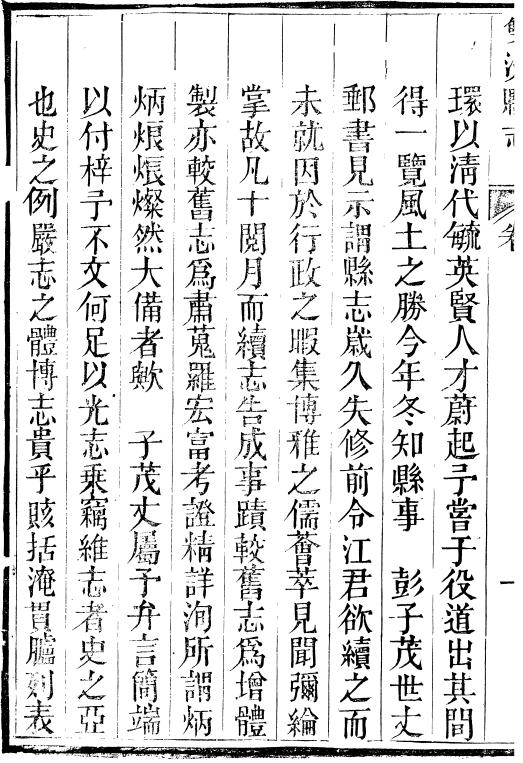 雙流縣志 卷 一
環以清代毓英賢人才蔚起予嘗于役道出其間
得一覽風土之勝今年冬知縣事 彭子茂世丈
郵書見示謂縣志歲久失修前令江君欲續之而
未就因於行政之暇集博雅之儒薈萃見聞彌綸
掌故凡十閱月而續志告成事蹟較舊志爲增體
製亦較舊志爲肅蒐羅宏富考證精詳洵所謂炳
炳烺烺燦然大備者歟 子茂丈屬予弁言簡端
以付梓予不文何足以光志乗竊維志者史之亞
也史之例嚴志之體博志貴乎賅括淹貫臚列表